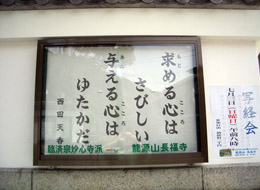 求める心は
さびしい
与える心は
ゆたかだ
西田天香
龍源山長福寺
臨済宗妙心寺派
写経会
七月一日【日曜日】午前八時